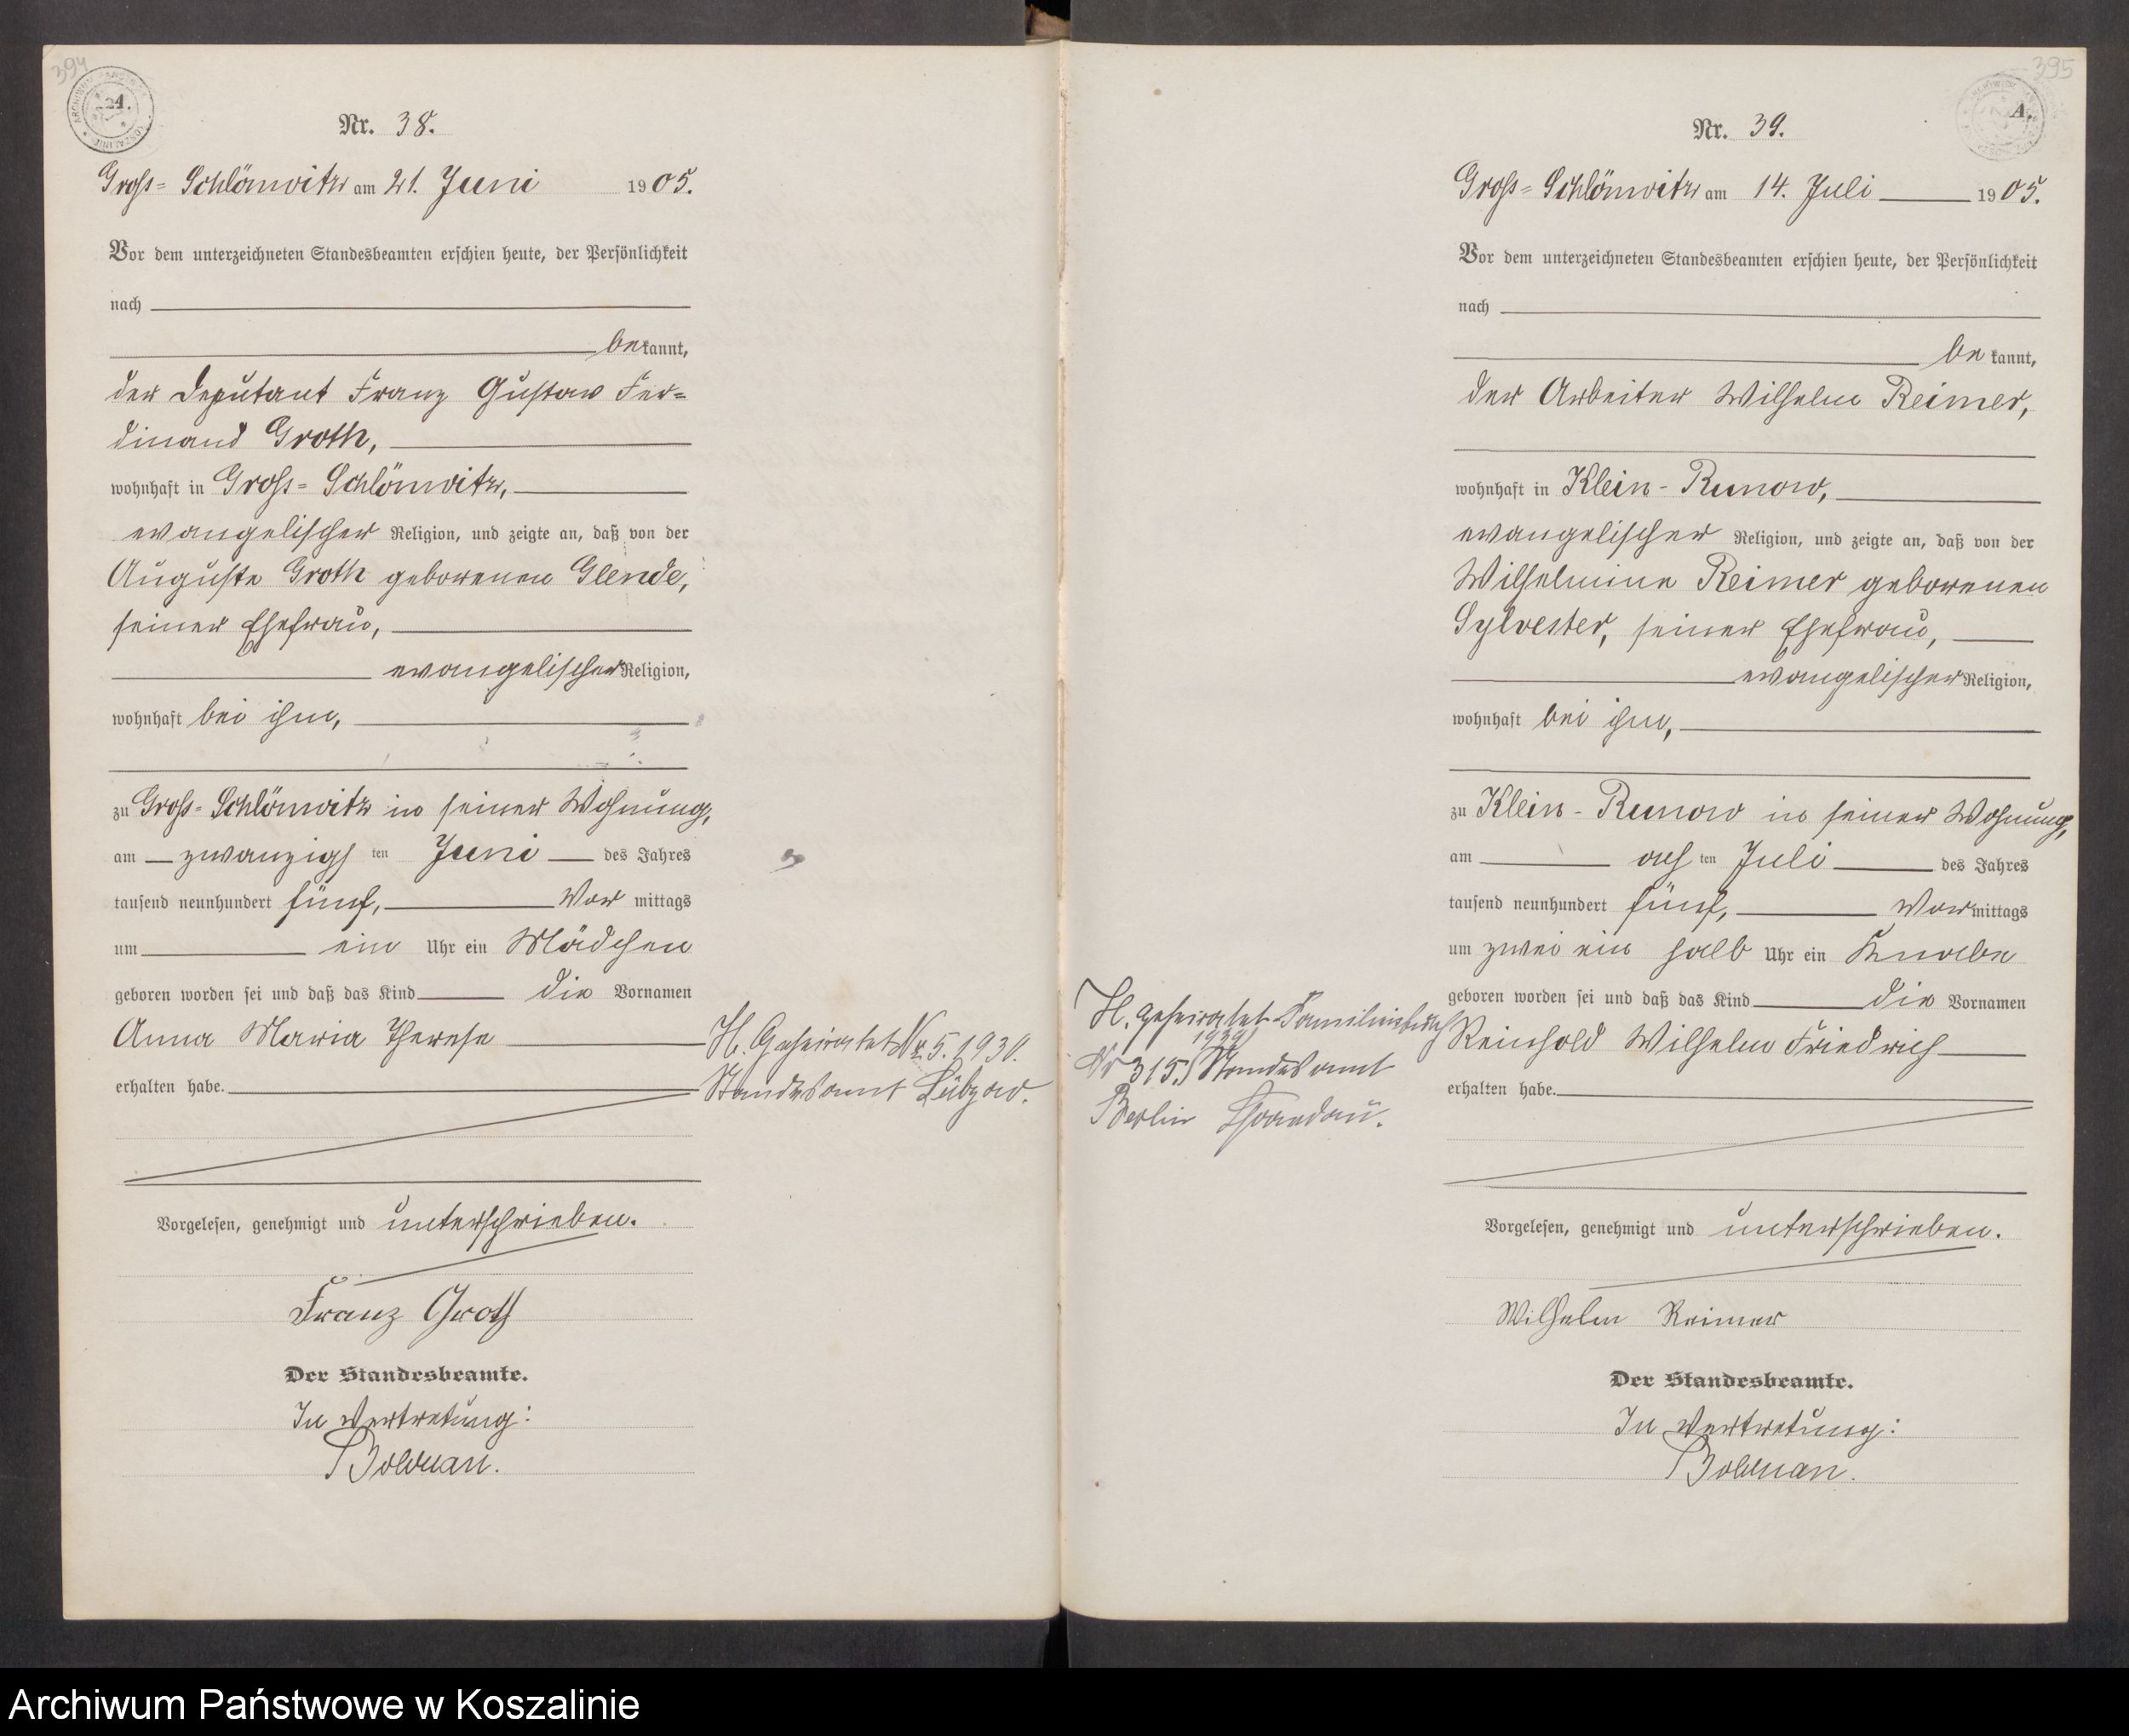 394
21.
Nr. 38.
Gross-Schlönwitz am 21. Juni 1905.
Vor dem unterzeichneten Standesbeamten erschien heute, der Persönlichkeit
nach
bekannt,
der Deputant Franz Gustav Fer=
dinand Groth,
wohnhaft in Gross-Schlönwitz,
evangelischer Religion, und zeigte an, daß von der
Auguste Groth geborenen Glende,
seiner Ehefrau,
evangelischer Religion,
wohnhaft bei ihm,
zu Gross-Schlönwitz in seiner Wohnung,
am zwanzigsten Juni des Jahres
tausend neunhundert fünf, Vormittags
um ein Uhr ein Mädchen
geboren worden sei und daß das Kind die Vornamen
Anna Maria Therese
erhalten habe.
H. Geheiratet Nr. 5. 1930.
Standesamt Lübzow.
Vorgelesen, genehmigt und unterschrieben.
Franz Groth
Der Standesbeamte.
In Vertretung:
Bolduan.
395
A.
Nr. 39.
Gross-Schlönwitz am 14. Juli 1905.
Vor dem unterzeichneten Standesbeamten erschien heute, der Persönlichkeit
nach
bekannt,
der Arbeiter Wilhelm Reimer,
wohnhaft in Klein-Runow,
evangelischer Religion, und zeigte an, daß von der
Wilhelmine Reimer geborenen
Sylvester, seiner Ehefrau,
evangelischer Religion,
wohnhaft bei ihm,
zu Klein-Runow in seiner Wohnung,
am achten Juli des Jahres
tausend neunhundert fünf, Vormittags
um zwei ein halb Uhr ein Knabe
geboren worden sei und daß das Kind die Vornamen
Reinhold Wilhelm Friedrich
erhalten habe.
H. geheiratet Familienbuch
1939
Nr 315. Standesamt
Berlin Spandau.
Vorgelesen, genehmigt und unterschrieben.
Wilhelm Reimer
Der Standesbeamte.
In Vertretung:
Bolduan.
Archiwum Państwowe w Koszalinie